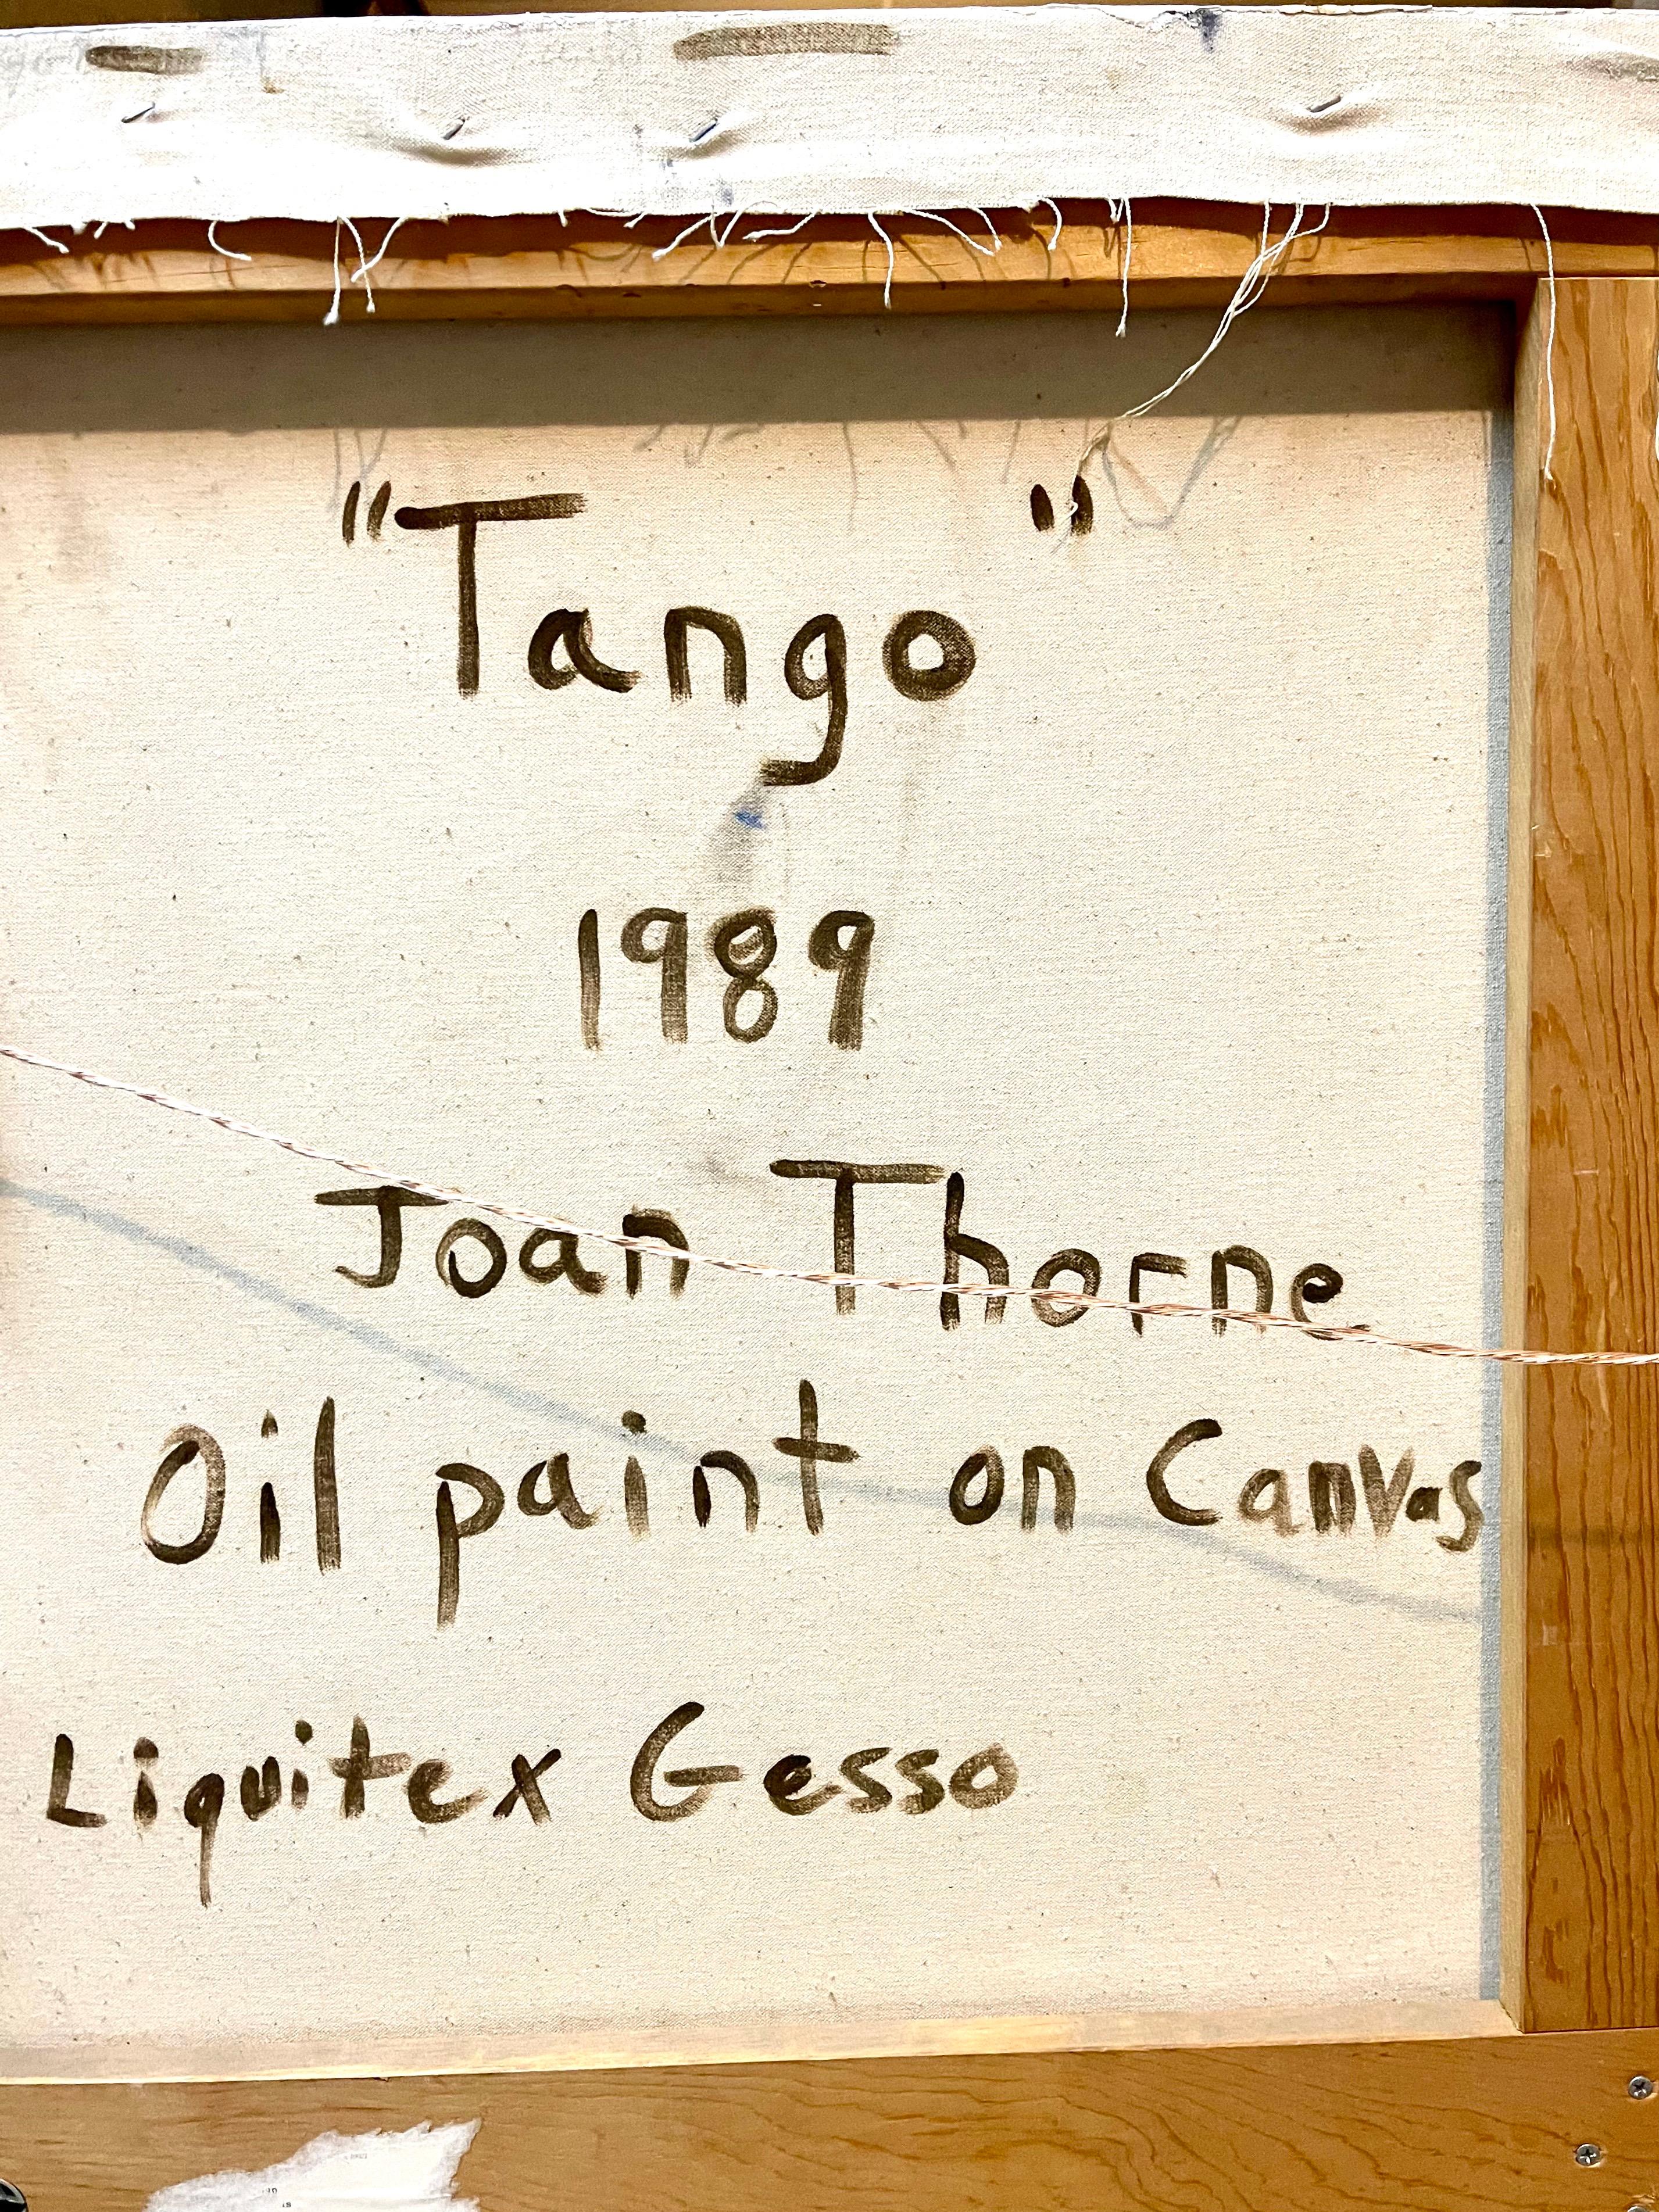 "Tango"
1989
Joan Thorne
Oil paint on Canvas
Liquitex Gesso